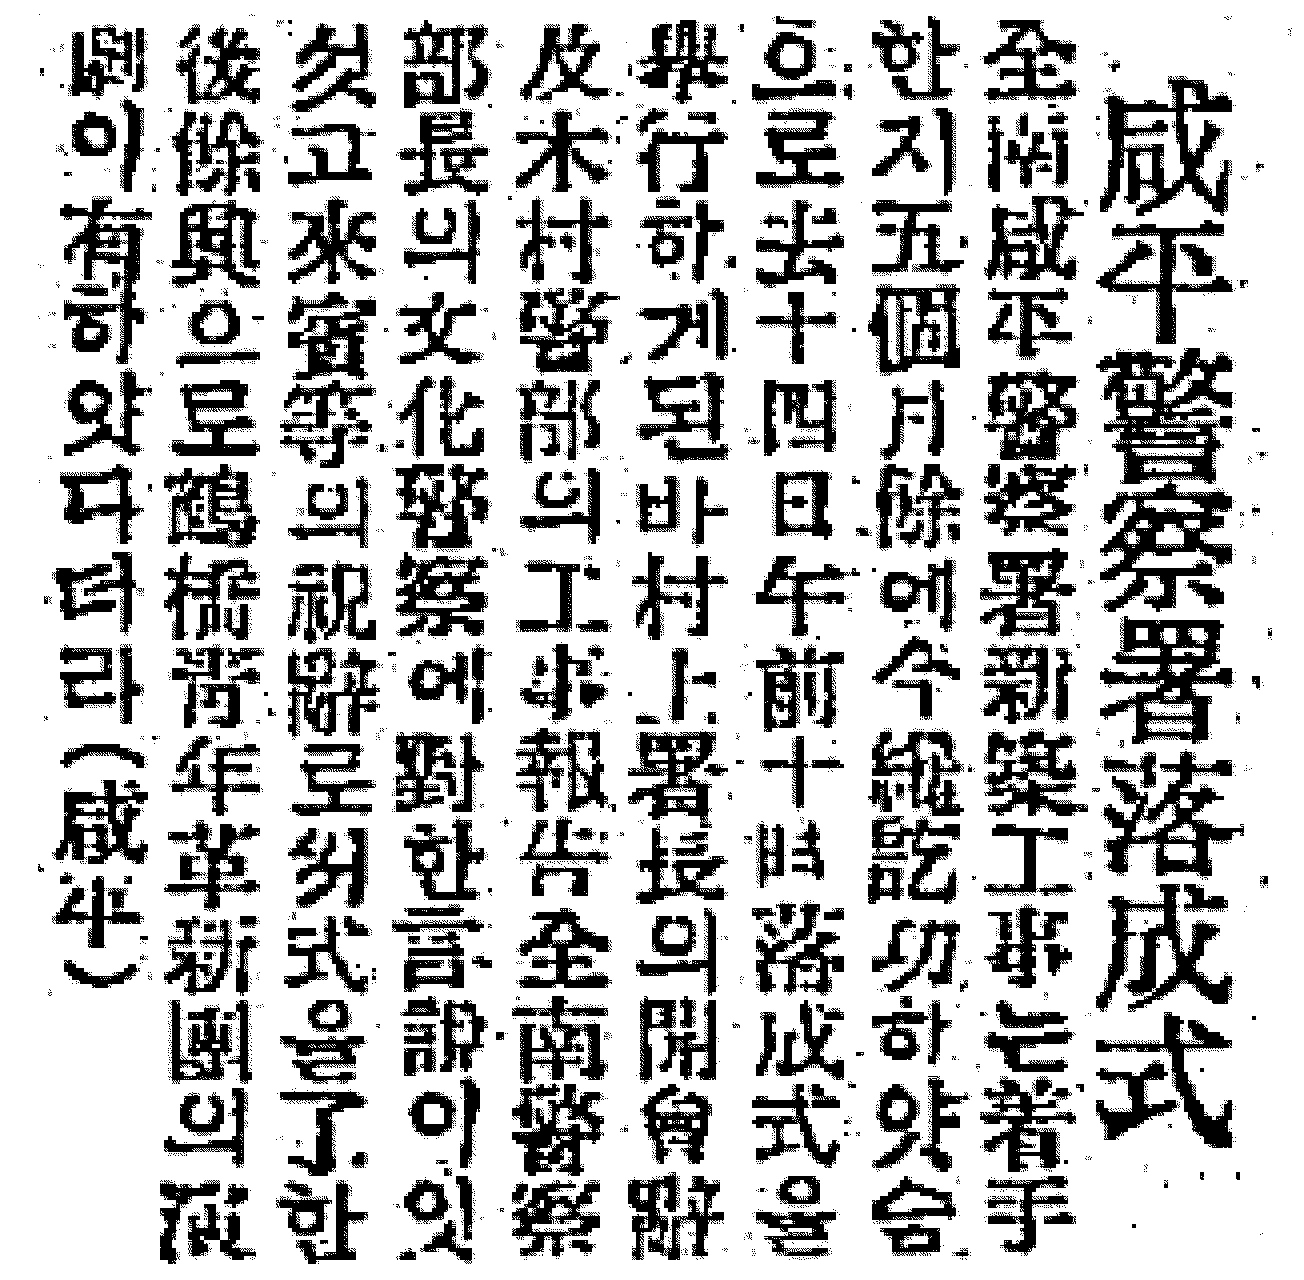 咸平警察署落成式
全南咸平警察署新築工事는着手
한지五個月餘에今纔訖功하얏슴
으로去十四日午前十時落成式을
擧行하게된바村上署長의開會辭
及木村警部의工事報告全南警察
部長의文化警察에對한言說이잇
섯고來賓等의祝辭로 式을了한
後餘興으로鶴橋靑年革新團의演
劇이有하얏다더라(咸平)